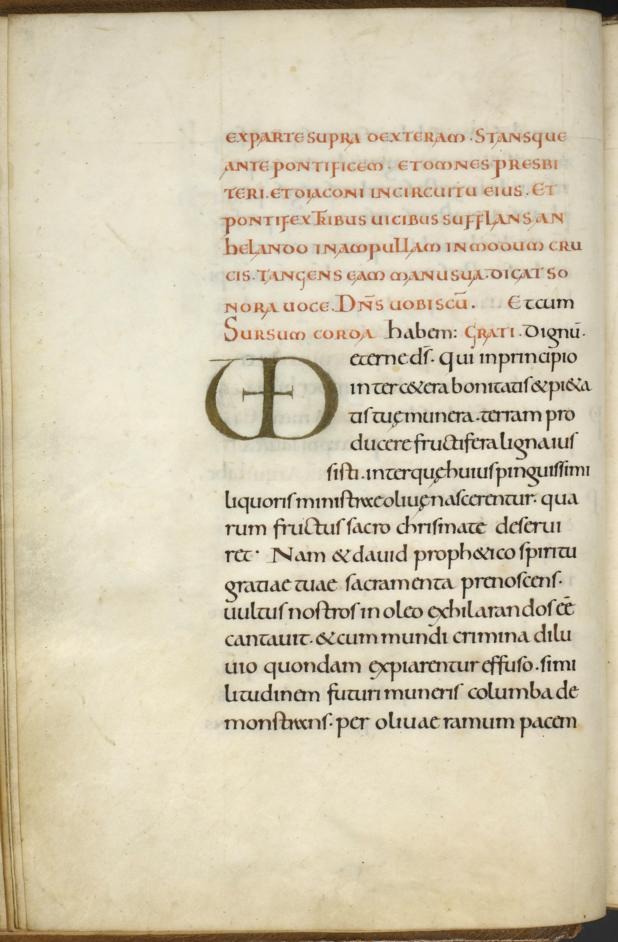 EX PARTE SUPRA DEXTERAM . STANSQUE
ANTE PONTIFICEM . ET OMNES PRESBI
TERI . ET DIACONI IN CIRCUITU EIUS . ET
PONTIFEX TRIBUS UICIBUS SUFFLANS AN
hELANDO IN AMPULLAM IN MODUM CRU
CIS . TANGENS EAM MANU SUA . DICAT SO
NORA UOCE . DN̄S UOBISCŪ . Et cum
SURSUM CORDA habem: GRATI . Dignū.
eterne dꝭ. qui in principio
inter cetera bonitatis & pi&a
tis tuę munera . terram pro
ducere fructifera ligna ius
sisti . inter quę huius pinguissimi
liquoris ministrae oliuę nascerentur . qua
rum fructus sacro chrismate deserui
ret . Nam & dauid proph&ico spiritu
gratiae tuae sacramenta prenoscens .
uultus nostros in oleo exhilarandos eē
cantauit . & cum mundi crimina dilu
uio quondam expiarentur effuso . simi
litudinem futuri muneris columba de
monstrans . per oliuae ramum pacem